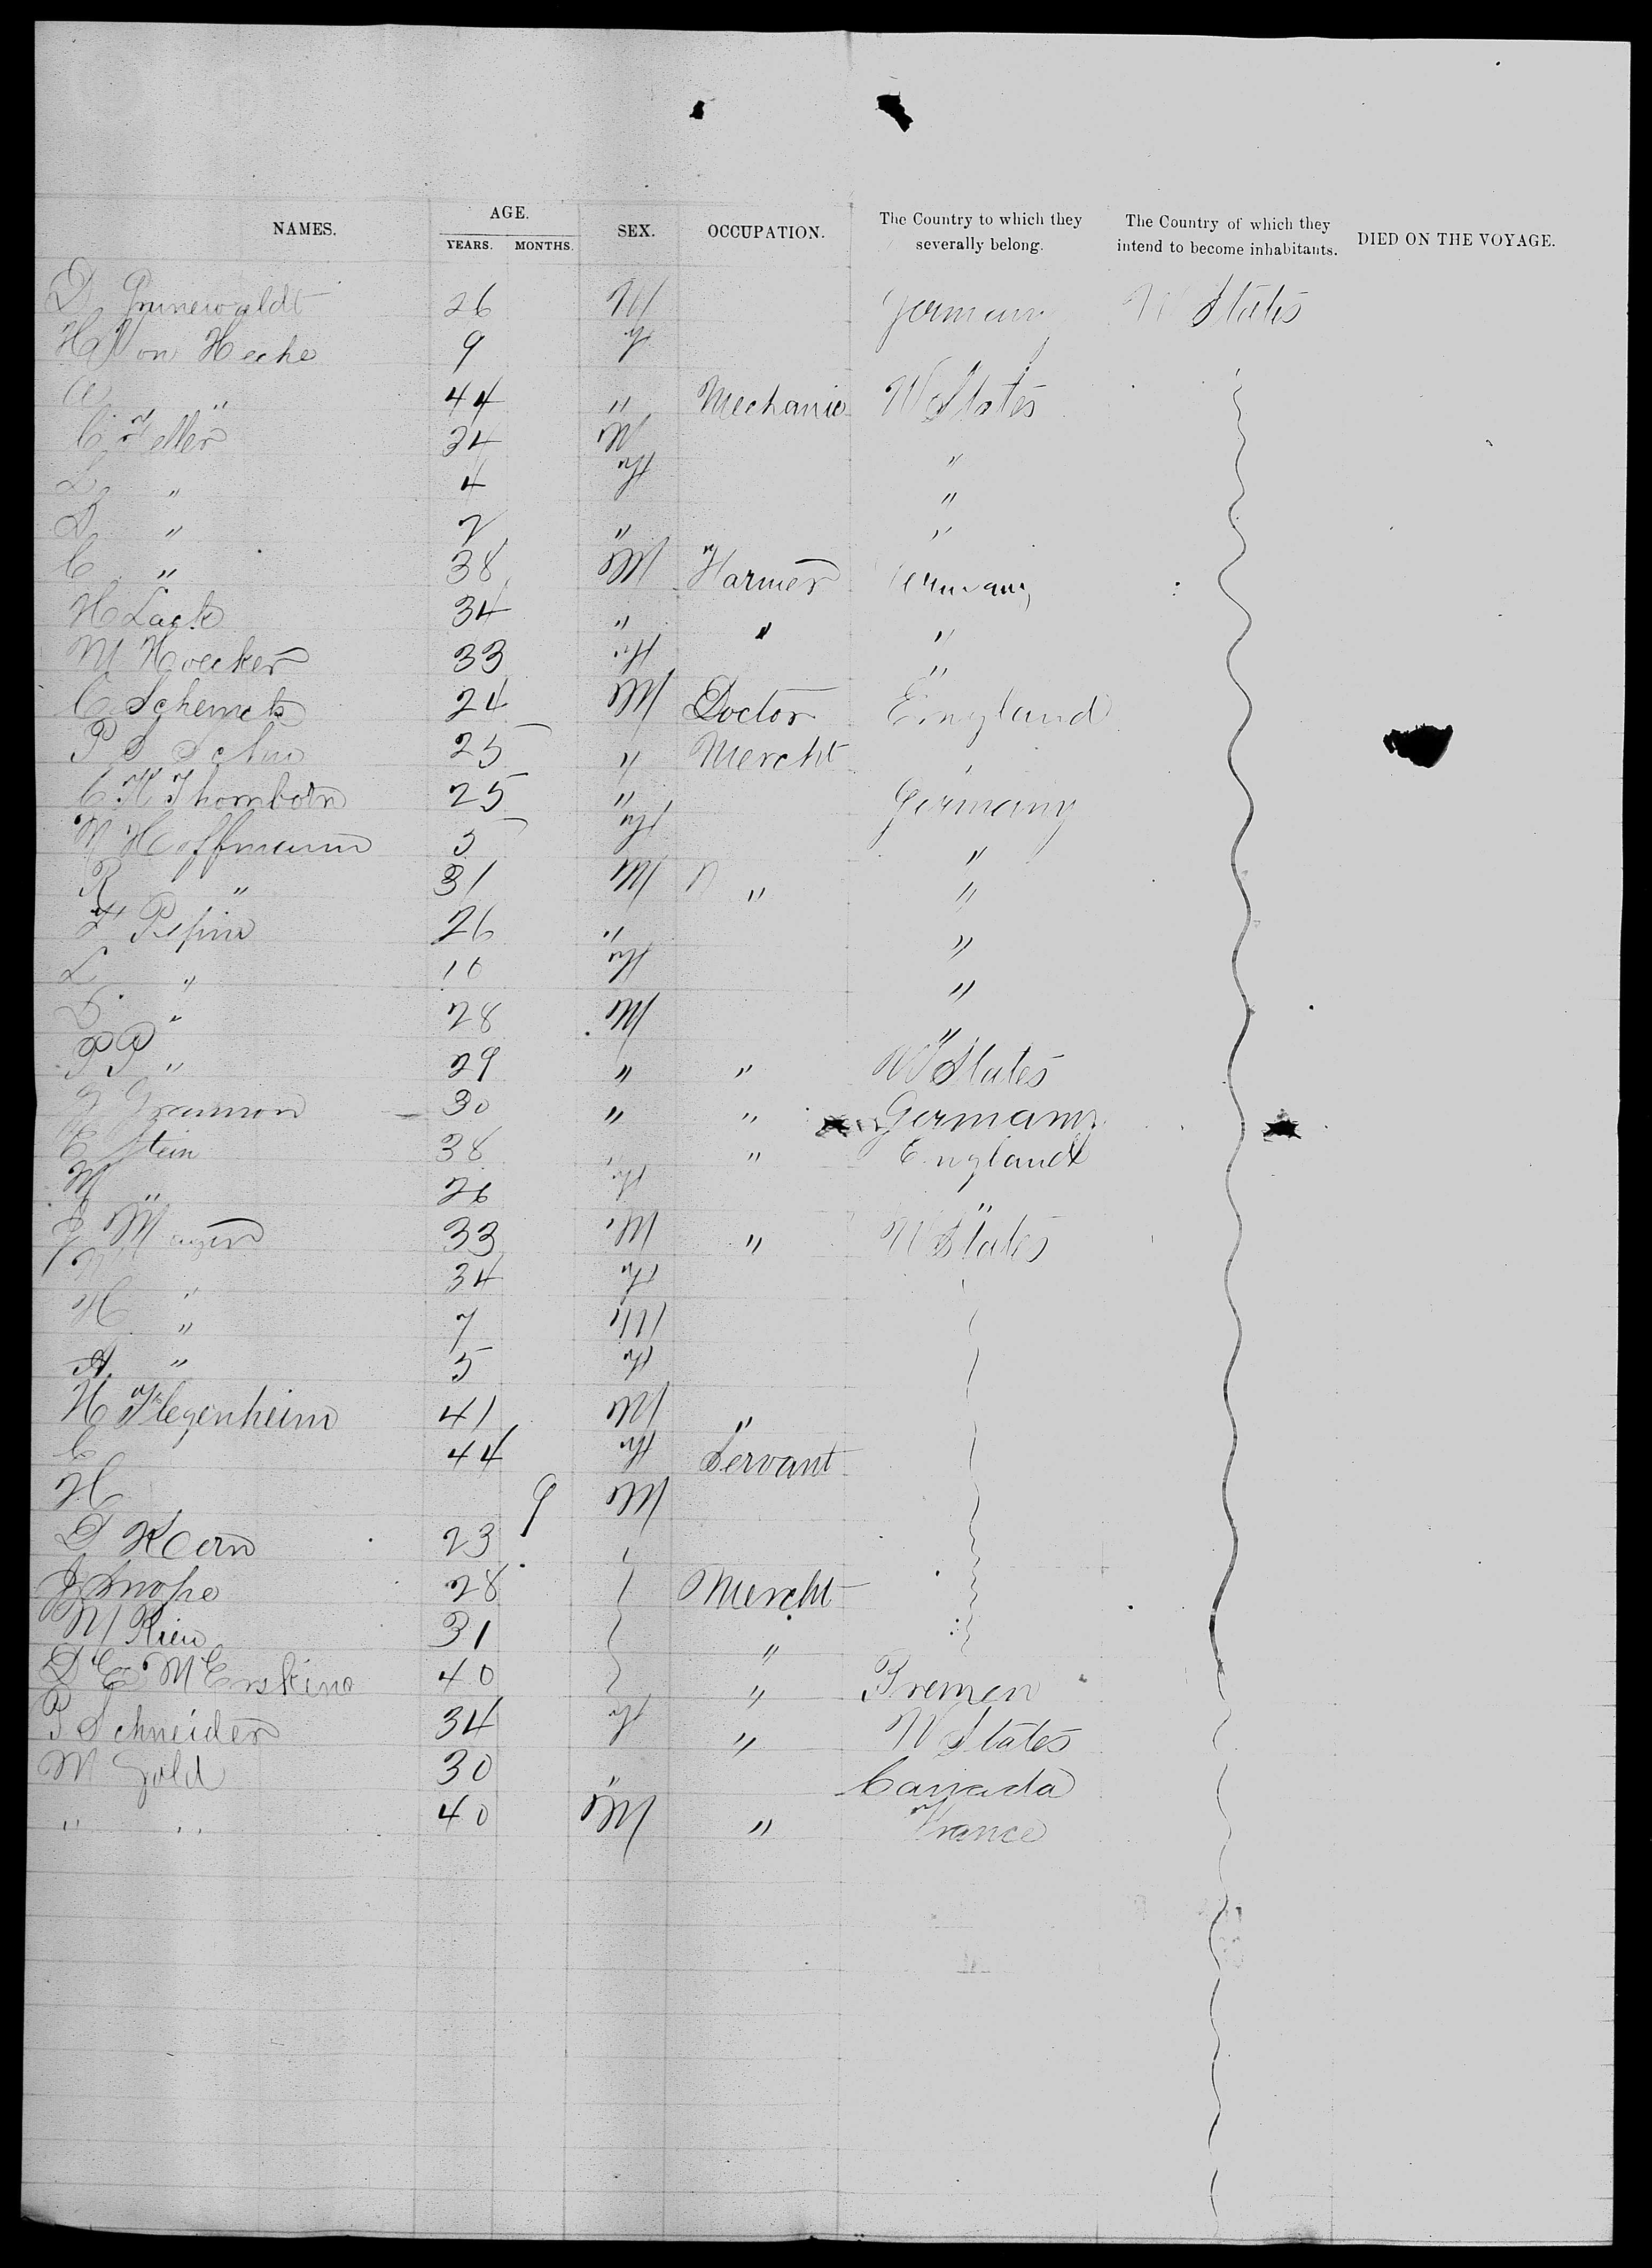 NAMES. AGE. SEX. OCCUPATION. The Country to which they severally belong. The Country of which they intend to become inhabitants. DIED ON THE VOYAGE.
YEARS. MONTHS.
D Grunewaldt 26 M Germany U States
H Von Heche 9 F
A " 44 " Mechanic U States
C Feller 24 M "
L " 4 F "
D " 2 " "
C " 38 M Farmer Germany
H Lack 34 " " "
M Hoecker 33 F "
C Schenck 24 M Doctor England
P S 25 " Mercht
C H Thornborn 25 " Germany
N Hoffmann 5 F "
R " 31 M " "
F Pepin 26 " "
L " 10 F "
D " 28 M "
P P " 29 " " U States
30 " " Germany
C Stein 38 " " England
M " 26 F "
J Mayer 33 M " U States
M " 34 F
H " 7 M
A " 5 F
H Flegenheim 41 M "
C 44 F Servant
H 9 M
D Kern 23
J Knope 28 Mercht
M Rieu 31 "
D C E McErskine 40 " Bremen
P Schneider 34 F " U States
M Gold 30 " Canada
" " 40 M " France